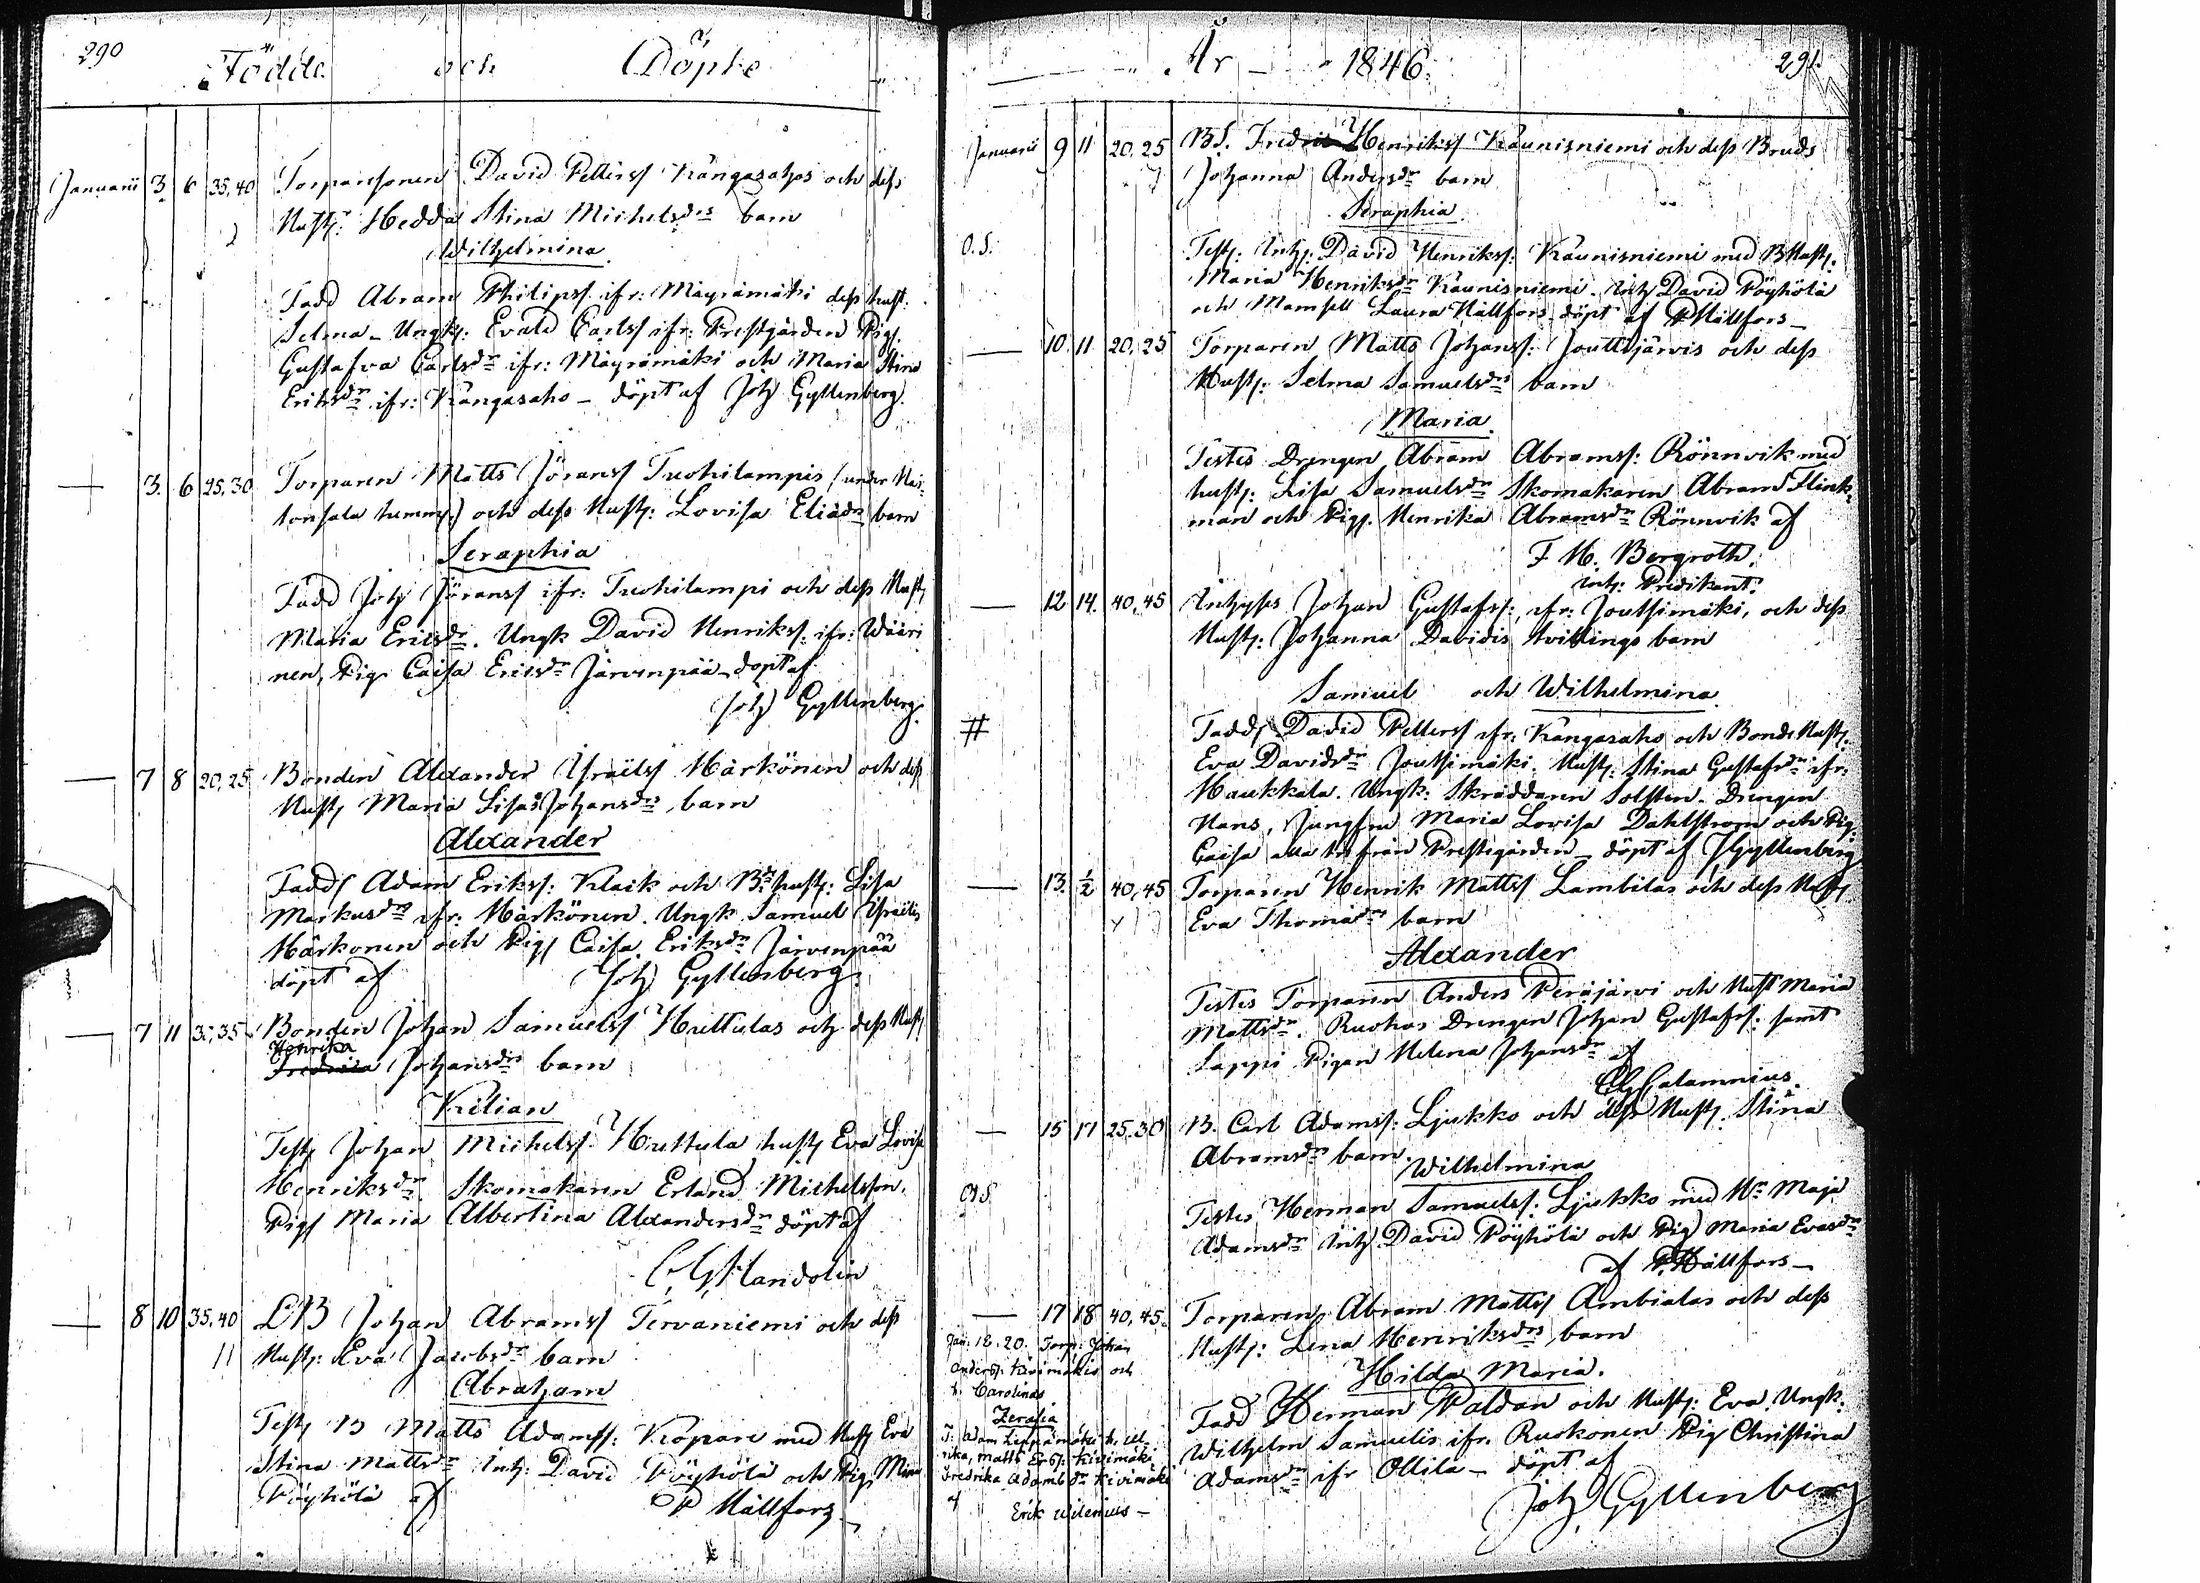 290
Födde och Döpte
Januarii 3. 6 35,40 Torparesonen David Pettersſ Kångasahos och deſs
Hustr: Hedda Stina Michelsdrs barn
Wilhelmina.
Fadd Abram Philipsſ ifr: Mäyrämäki deſs hust:
Selma – Ungk: Evald Carlsſ ifr: Prestgården Pig.
Gustafva Carlsdr ifr: Mäyrämäki och Maria Stina
Eriksdr ifr: Kångasaho – döpt af Joh Gyllenberg.
3. 6 25,30 Torparen Matts Jöransſ Tuohilampis (under
hemm:) och deſs Hust: Lovisa Eliædr barn
Seraphia
Fadd Joh Jöransſ ifr: Tuohilampi och deſs Hust
Maria Ericsdr. Ungk David Henriksſ: ifr: Wääri
nen, Pig. Caisa Ericsdr Järvenpää – döpt af
Joh Gyllenberg.
7 8 20,25 Bonden Alexander Israëlsſ Härkönen och deſs
Hust Maria Lisas Johansdrs barn
Alexander
Fadd Adam Eriksſ: Klaik och Bde hust: Lisa
Markusdr ifr: Härkönen. Ungk Samuel Israëlis
Härkonen och Pig Caisa Eriksdr Järvenpää
döpt af Joh Gyllenberg.
7 11 30,35 Bonden Johan Samuelsſ Huttulas och deſs Hust
Henrika
Fredrica Johansdrs barn
Kilian
Test Johan Michelsſ. Huttula hust Eva Lovisa
Henriksdr. Skomakaren Erland Michelsson.
Pig Maria Albertina Alexandersdr döpt af
C. G. Handolin
8 10 35,40 LB Johan Abramsſ Tervaniemi och deſs
11 Hust: Eva Jacobsdr barn
Abraham
Test B Matts Adamsſ: Kopare med Hust Eva
Stina Mattsdr Inh: David Pöyhölä och Pig Mina
Pöyhölä af P Hällfors
År 1846. 291.
Januarii 9 11 20,25 BS. Fredric Henriksſ Kaunisniemi och deſs Bruds
Johanna Andersdr barn
Seraphia.
O.S. Test: Inh: David Henriksſ: Kaunisniemi med BHust:
Maria Henriksdr Kaunisniemi. Inh David Pöyhölä
och Mamsell Laura Hällfors. döpt af P Hällfors –
10. 11 20,25 Torparen Matts Johansſ: Jouttijärvis och deſs
Hust: Selma Samuelsdrs barn
Maria.
Testes Drengen Abram Abramsſ: Rönnvik med
hust: Lisa Samuelsdr Skomakaren Abram Flink-
man och Pig. Henrika Abramsdr Rönnvik af
F H. Bergroth.
Predikant.
12 14. 40,45 Inhyses Johan Gustafsſ: ifr: Joutsimäki, och deſs
Hust: Johanna Davidis tvillinge barn
Samuel och Wilhelmina.
# Fadd David Pettersſ ifr: Kangasaho och Bonde Hust:
Eva Davidsdr Joutsimäki. Hust: Stina Gustafsdr ifr:
Haukkala. Ungk: Skräddaren Solsten. Drengen
Hans, Jungfru Maria Lovisa Dahlstrom och Pig.
Caisa alla tre från Prestegården – döpt af J Gyllenberg
13. ½ 40,45 Torparen Henrik Mattsſ Lambilas och deſs Hust
Eva Thomædr barn
Alexander
Testes Torparen Anders Peräjärvi och Hust Maria
Mattsdr. Ruokos Drengen Johan Gustafsſ: samt
Lappi Pigan Helena Johansdr af
Calamnius.
15 17 25,30 B. Carl Adamsſ: Ljukko och deſs Hust. Stina
Abramsdr barn.
Wilhelmina
O.S. Testes Herman Samuelsſ: Ljukko med Hu Maja
Adamsdr Inh David Pöyhölä och Pig Maria Evasdr
af P. Hällfors –
17 18 40,45. Torparen Abram Mattsſ Ambialas och deſs
Hust: Lena Henriksdrs barn
Hilda Maria.
Fadd Herman Paldan och Hust: Eva. Ungk.
Wilhelm Samuelis ifr: Ruokonen Pig Christina
Adamsdr ifr Ollila – döpt af
Joh. Gyllenberg
Jan. 18. 20. Torp: Johan
Andersſ. Kivimäkis och
h. Carolinas
Zerafia
T: Adam Leppämäki h. Ul
rika, Matts Ersſ. Kivimäki
Fredrika Adamsdr Kivimäki
af
Erik Wilenius –